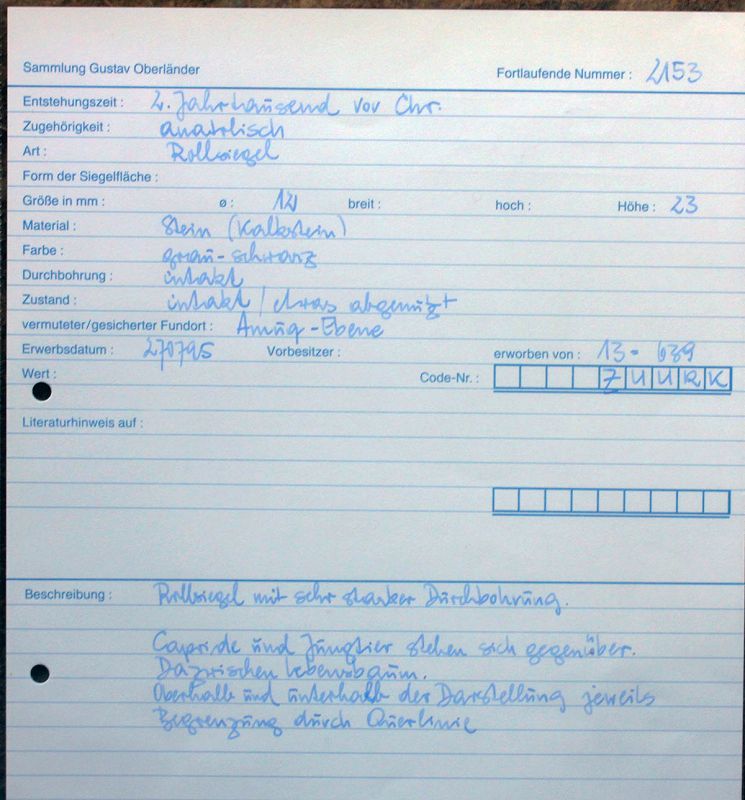 Sammlung Gustav Oberländer Fortlaufende Nummer : 2153
Entstehungszeit : 2. Jahrhausend vor Chr.
Zugehörigkeit : anatolisch
Art : Rollsiegel
Form der Siegelfläche :
Größe in mm : ø : 12 breit : hoch : Höhe : 23
Material : Stein (Kalkstein)
Farbe : grau-schwarz
Durchbohrung : intakt
Zustand : intakt / etwas abgenützt
vermuteter/gesicherter Fundort : Amuq-Ebene
Erwerbsdatum : 270795 Vorbesitzer : erworben von : 13-639
Wert : Code-Nr. : ZUURK
Literaturhinweis auf :
Beschreibung : Rollsiegel mit sehr starker Durchbohrung.
Capride und Jungtier stehen sich gegenüber.
Dazwischen Lebensbaum.
Oberhalb und unterhalb der Darstellung jeweils
Begrenzung durch Querlinie